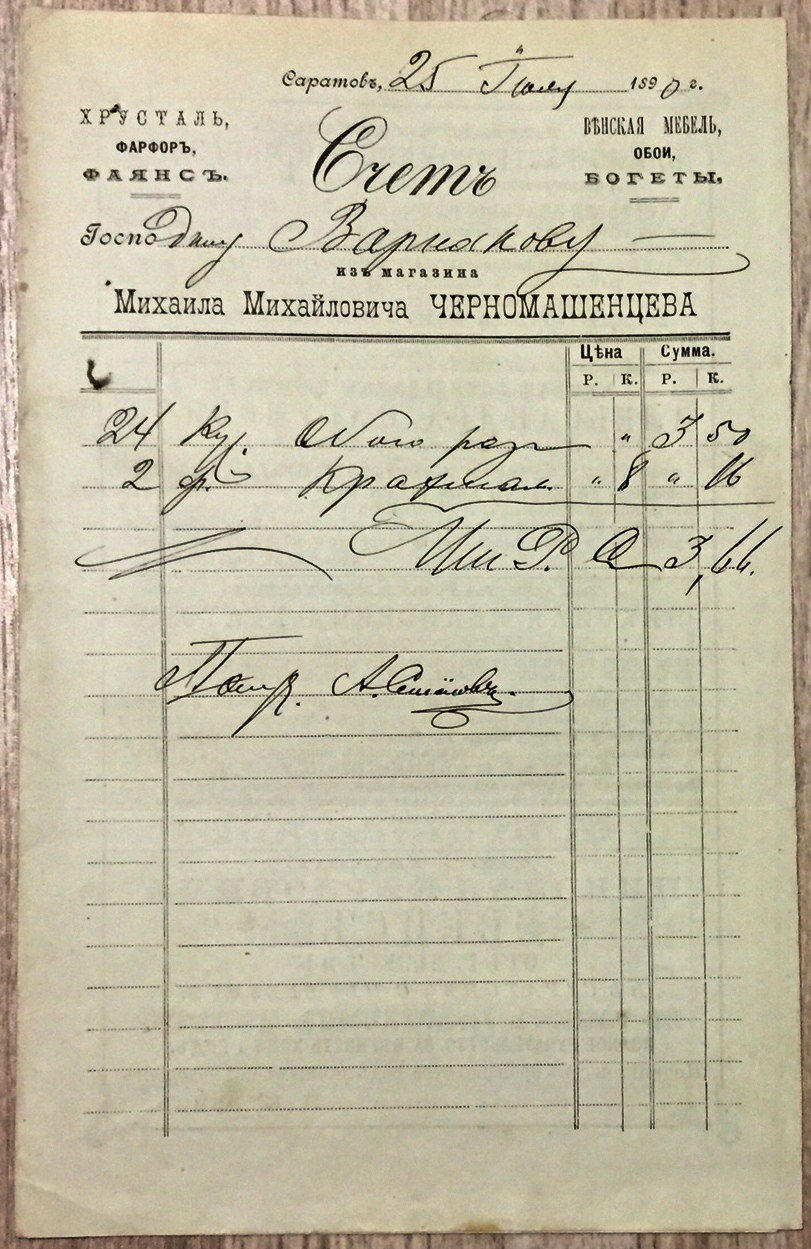 Саратовъ, 25 Іюля 1890 г.
ХРУСТАЛЬ,
ФАРФОРЪ,
ФАЯНСЪ.
Счетъ
ВѢНСКАЯ МЕБЕЛЬ,
ОБОИ,
БОГЕТЫ.
Господину
изъ магазина
Михаила Михайловича ЧЕРНОМАШЕНЦЕВА
Цѣна Сумма.
Р. К. Р. К.
24 Ку. Обою раз " 3 50
2 ф. Крахмал " 8 " 16
3,66.
А.